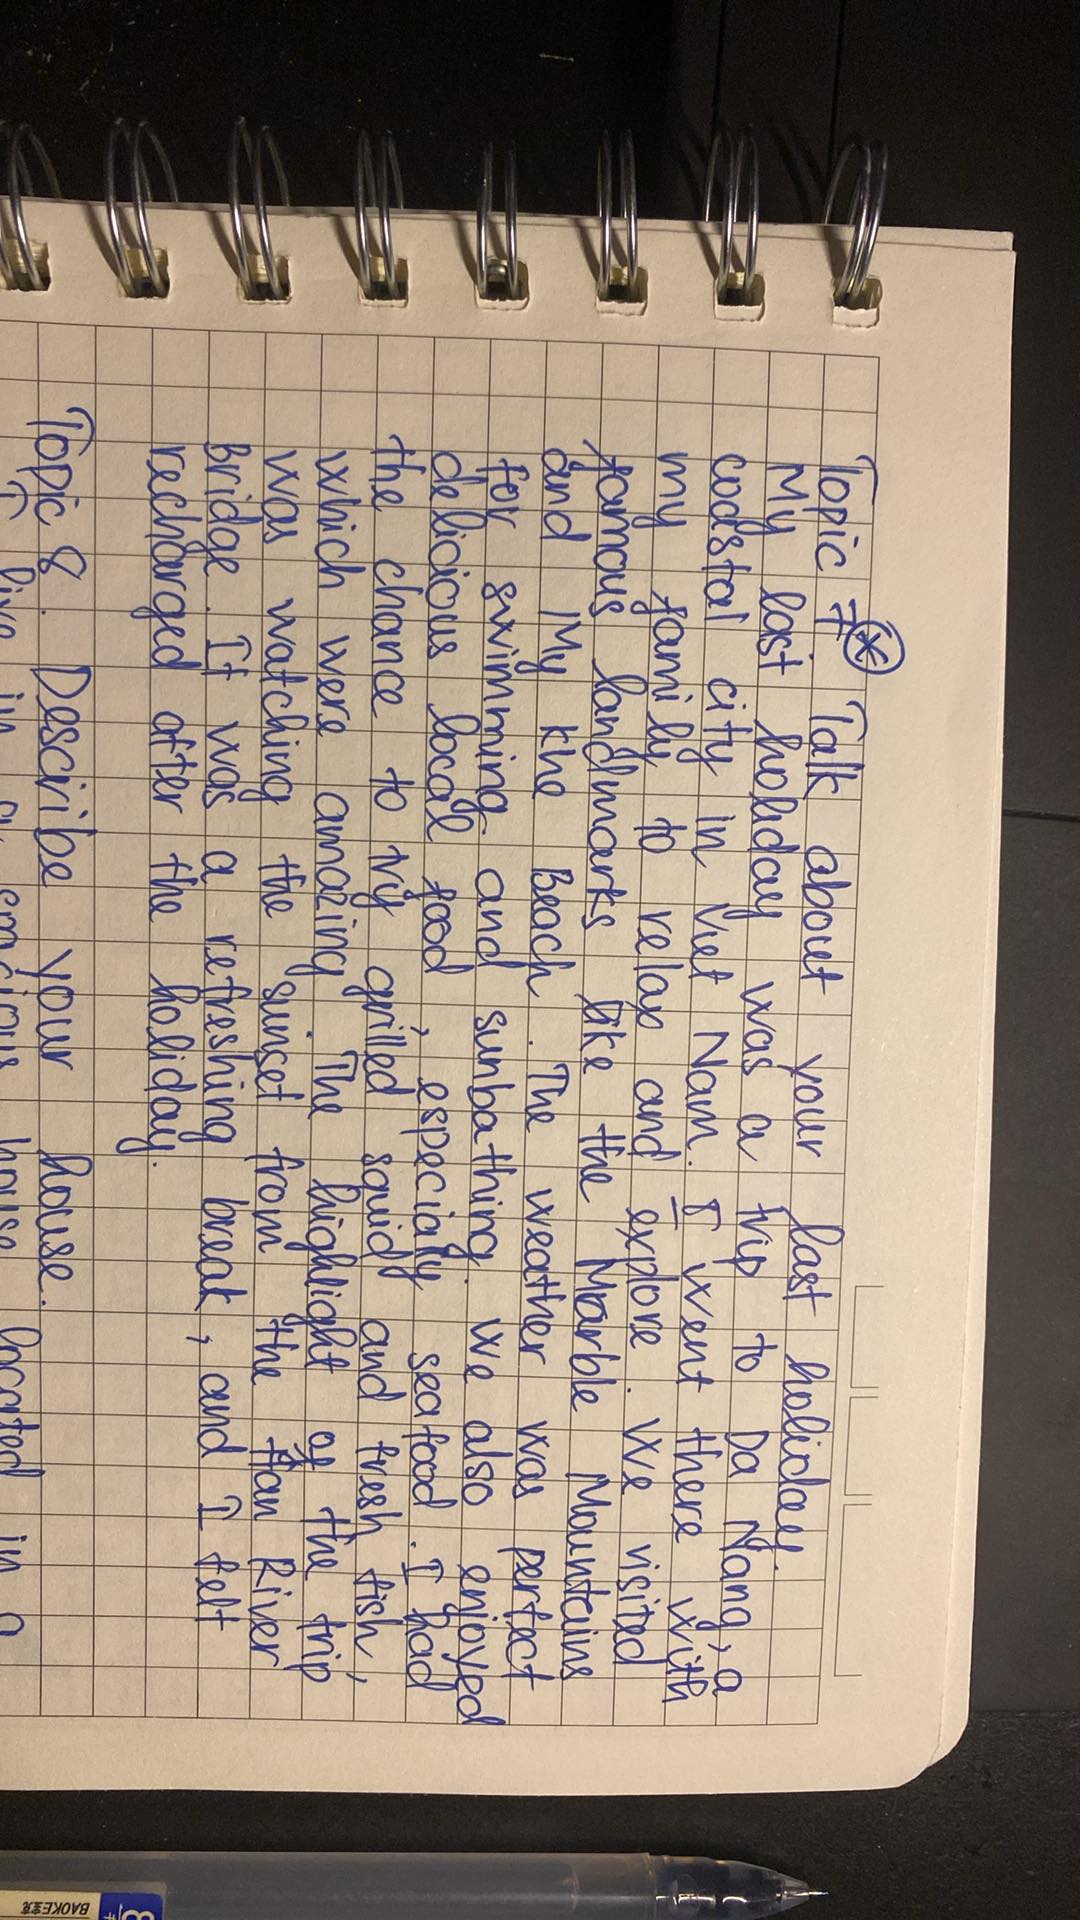 Topic 7. Talk about your last holiday.
My last holiday was a trip to Da Nang, a
coastal city in Viet Nam. I went there with
my family to relax and explore. We visited
famous landmarks like the Marble Mountains
and My Khe Beach. The weather was perfect
for swimming and sunbathing. We also enjoyed
delicious local food, especially seafood. I had
the chance to try grilled squid and fresh fish,
which were amazing. The highlight of the trip
was watching the sunset from the Han River
Bridge. It was a refreshing break, and I felt
recharged after the holiday.
Topic 8. Describe your house.
I live in a spacious house located in a
BAOKE